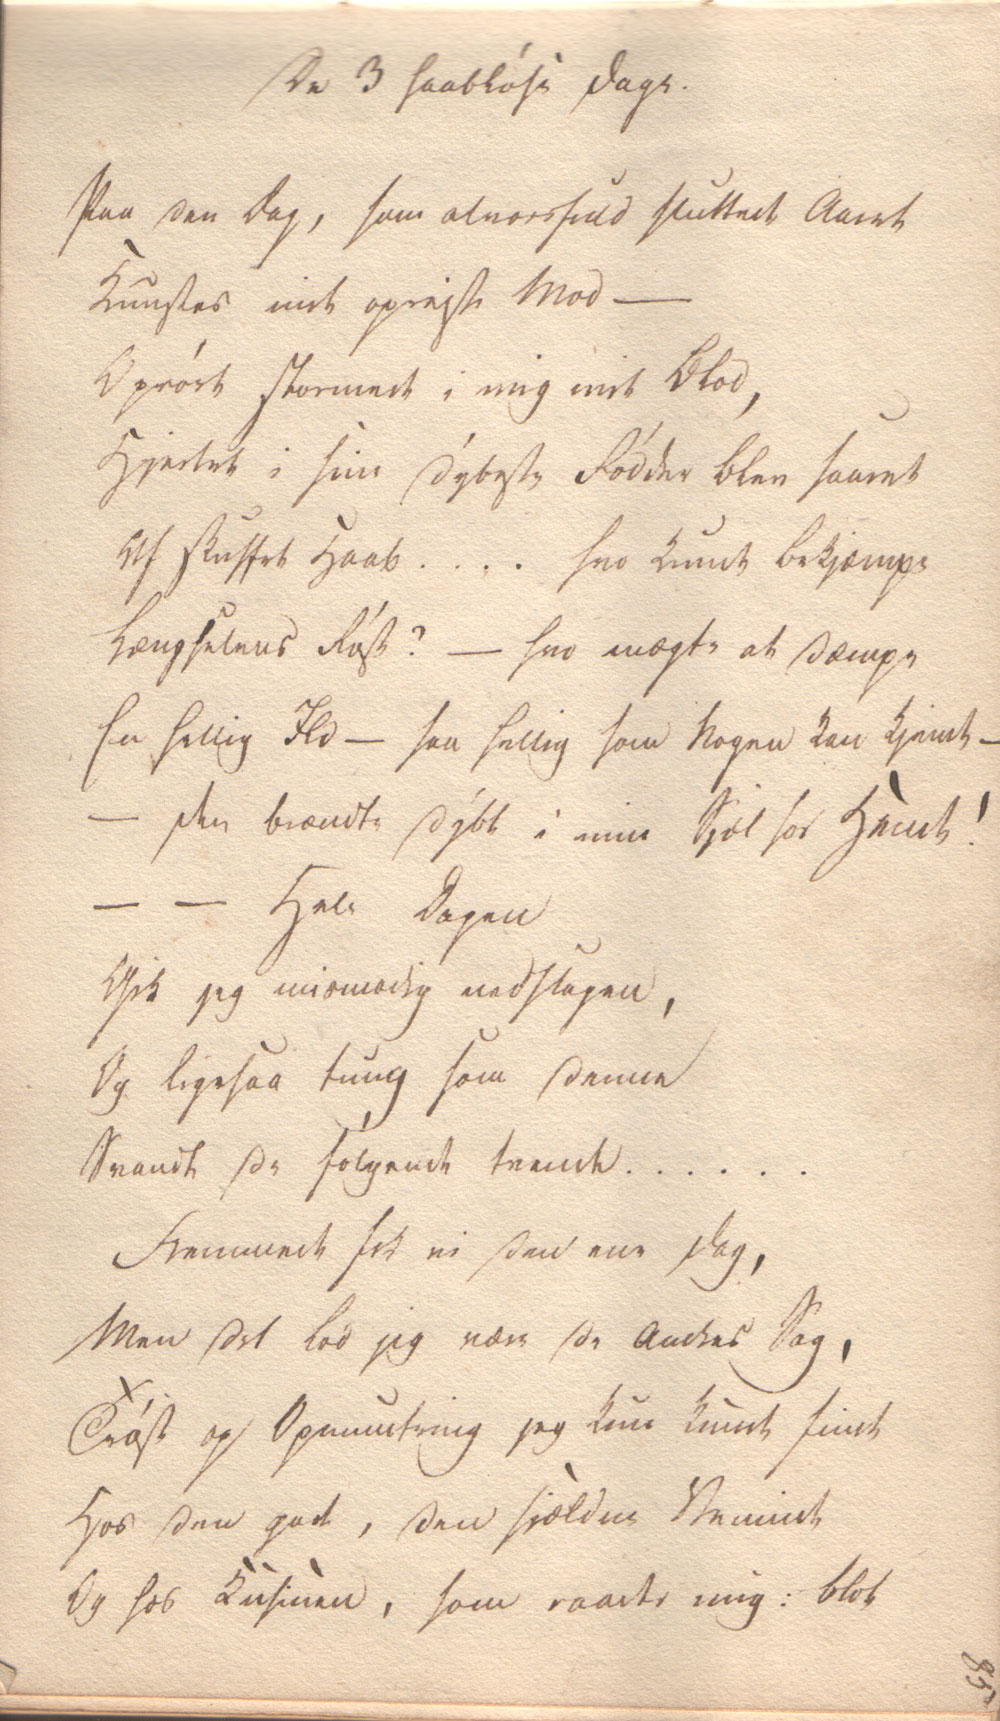 De 3 haabløse Dage.
Paa den Dag, som alvorsfuld sluttede Aaret
Knustes mit opreiste Mod —
Oprørt stormede i mig mit Blod,
Hjertet i sine dybeste Rødder blev saaret
Af skuffet Haab . . . . hvo kunde bekjæmpe
Længselens Røst? — hvo mægte at dæmpe
En hellig Ild — saa hellig som Nogen kan kjende —
— den brændte dybt i min Sjæl for Hende!
— — Hele Dagen
Gik jeg mismodig nedslagen,
Og ligesaa tung som denne
Svandt de følgende tvende . . . . . .
Fremmede fik vi den ene Dag,
Men det lod jeg være de Andres Sag,
Trøst og Opmuntring jeg kun kunde finde
Hos den gode, den sjældne Veninde
Og hos Kusinen, som raadte mig: blot